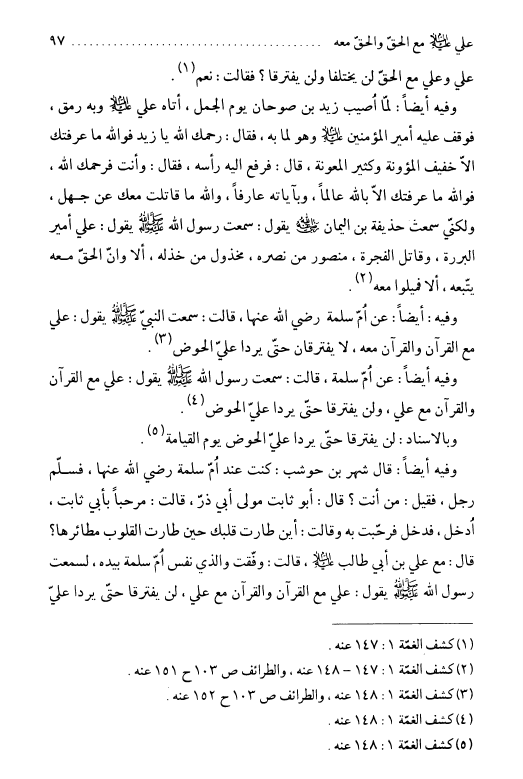 علي ﵇ مع الحقّ والحقّ معه ........................................ ٩٧
علي وعلي مع الحقّ لن يختلفا ولن يفترقا ؟ فقالت : نعم(١) .
وفيه أيضاً : لمّا أصيب زيد بن صوحان يوم الجمل ، أتاه علي ﵇ وبه رمق ،
فوقف عليه أمير المؤمنين ﵇ وهو لما به ، فقال : رحمك الله يا زيد فوالله ما عرفتك
الاّ خفيف المؤونة وكثير المعونة ، قال : فرفع اليه رأسه ، فقال : وأنت فرحمك الله ،
فوالله ما عرفتك الاّ بالله عالماً ، وبآياته عارفاً ، والله ما قاتلت معك عن جهل ،
ولكنّي سمعت حذيفة بن اليمان يقول : سمعت رسول الله ﷺ يقول : علي أمير
البررة ، وقاتل الفجرة ، منصور من نصره ، مخذول من خذله ، ألا وانّ الحقّ معه
يتّبعه ، ألا فميلوا معه(٢) .
وفيه : أيضاً : عن أمّ سلمة رضي الله عنها ، قالت : سمعت النبيّ ﷺ يقول : علي
مع القرآن والقرآن معه ، لا يفترقان حتّى يردا عليّ الحوض(٣) .
وفيه أيضاً : عن أمّ سلمة ، قالت : سمعت رسول الله ﷺ يقول : علي مع القرآن
والقرآن مع علي ، ولن يفترقا حتّى يردا عليّ الحوض(٤) .
وبالاسناد : لن يفترقا حتّى يردا عليّ الحوض يوم القيامة(٥) .
وفيه أيضاً : قال شهر بن حوشب : كنت عند أمّ سلمة رضي الله عنها ، فسلّم
رجل ، فقيل : من أنت ؟ قال : أبو ثابت مولى أبي ذرّ ، قالت : مرحباً بأبي ثابت ،
أدخل ، فدخل فرحّبت به وقالت : أين طارت قلبك حين طارت القلوب مطائرها؟
قال : مع علي بن أبي طالب ﵇ ، قالت : وفّقت والذي نفس أمّ سلمة بيده ، لسمعت
رسول الله ﷺ يقول : علي مع القرآن والقرآن مع علي ، لن يفترقا حتّى يردا عليّ
(١) كشف الغمّة ١ : ١٤٧ عنه .
(٢) كشف الغمّة ١ : ١٤٧ – ١٤٨ عنه ، والطرائف ص ١٠٣ ح ١٥١ عنه .
(٣) كشف الغمّة ١ : ١٤٨ عنه ، والطرائف ص ١٠٣ ح ١٥٢ عنه .
(٤) كشف الغمّة ١ : ١٤٨ عنه .
(٥) كشف الغمّة ١ : ١٤٨ عنه .